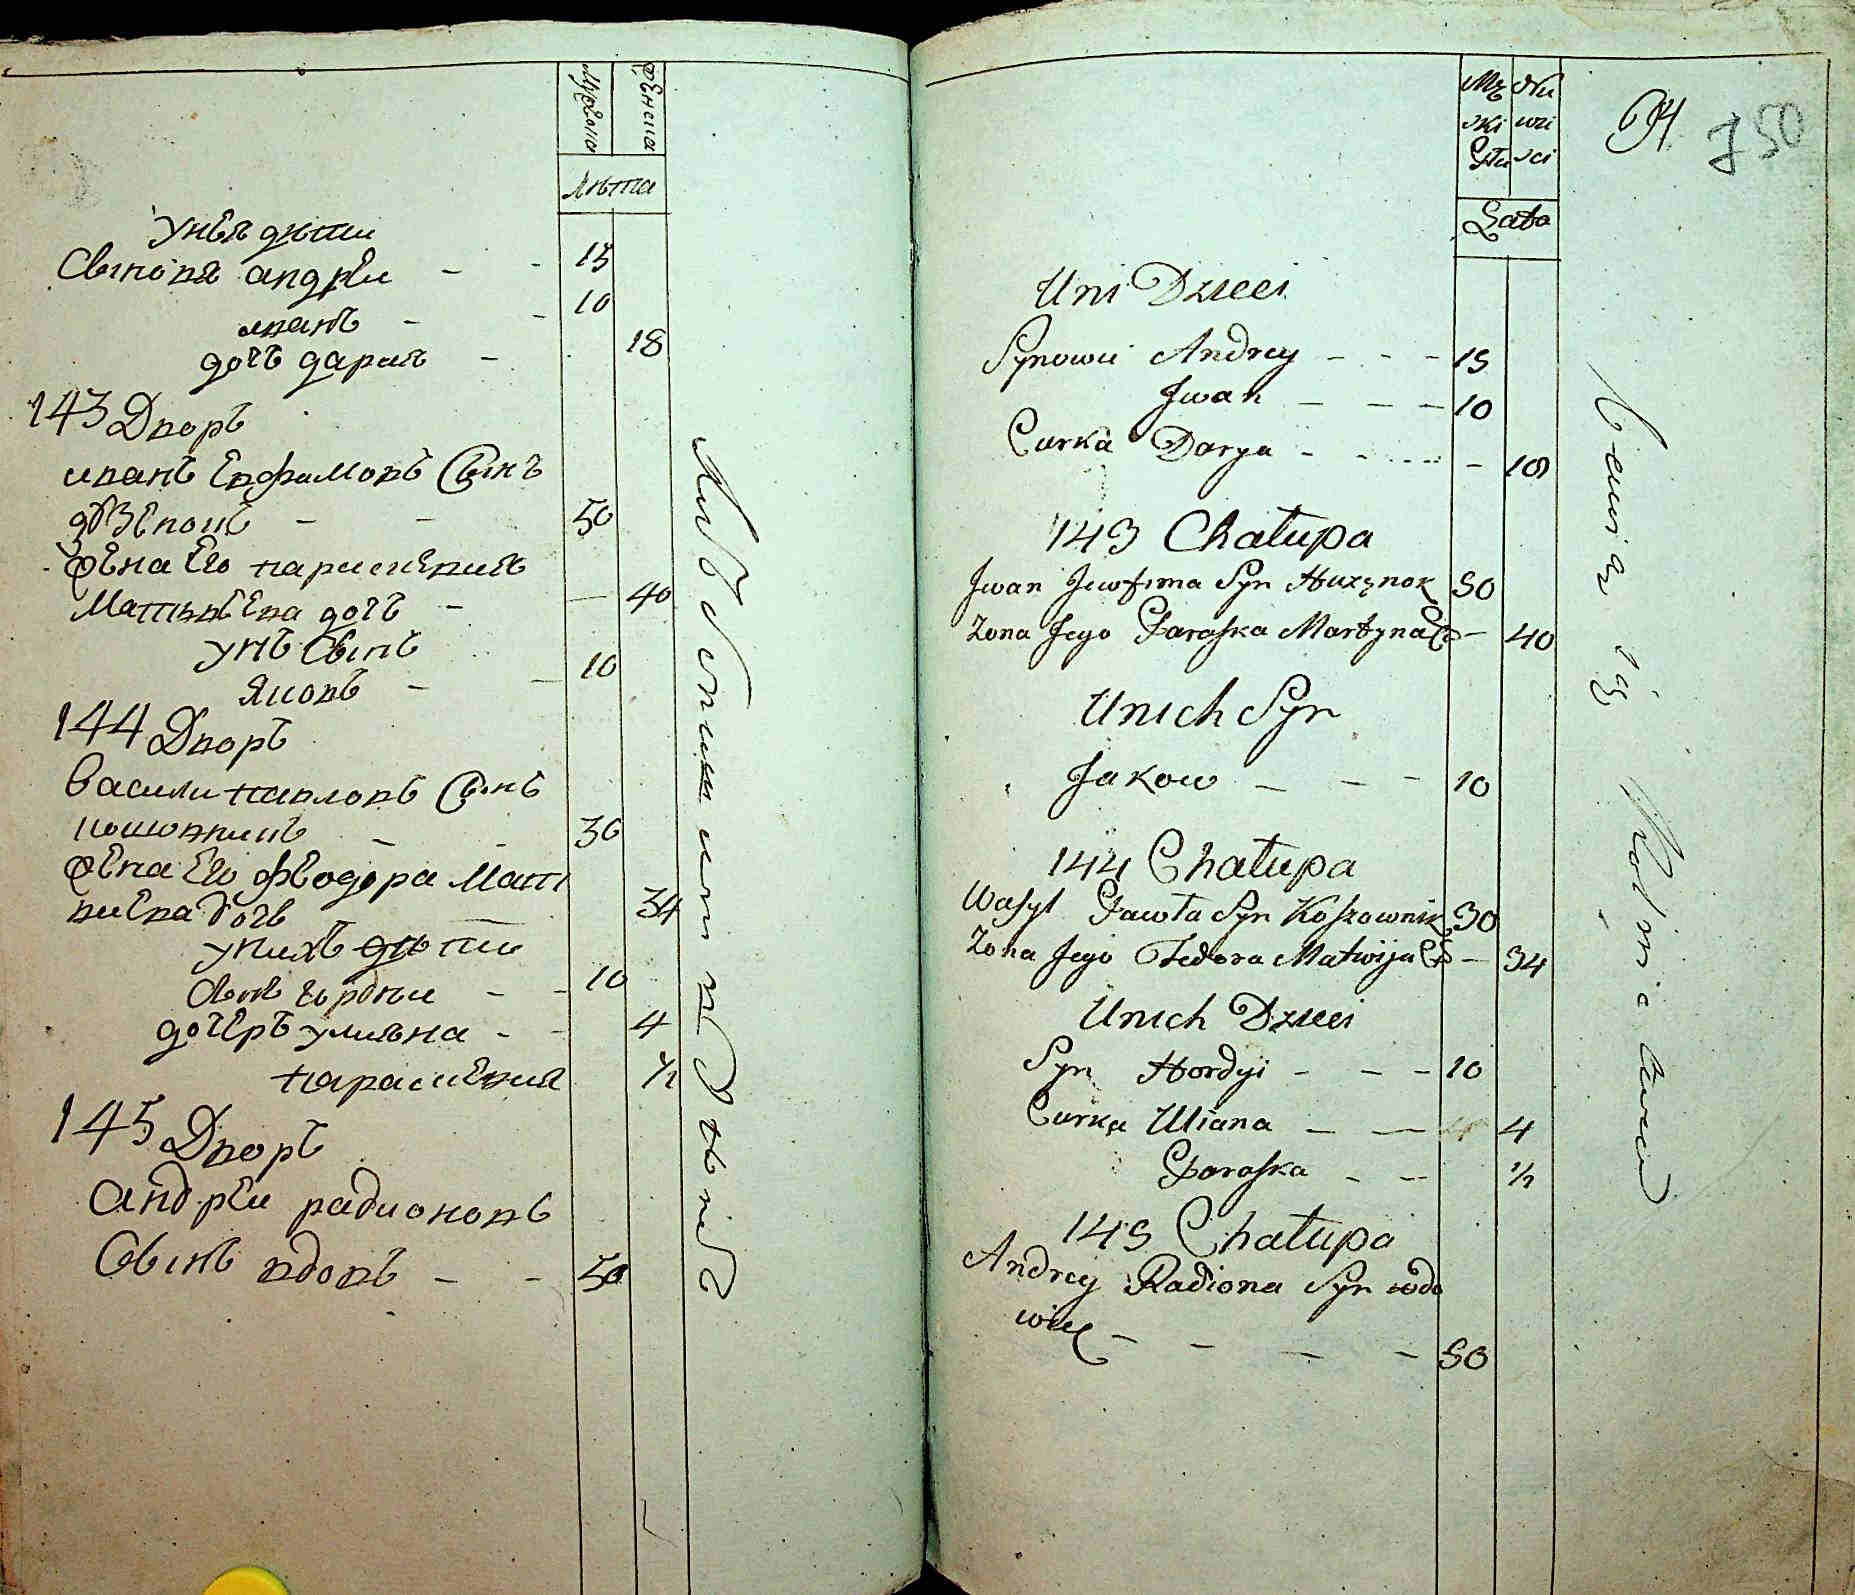 мужска женска
лѣта
унея дѣти
Сынова андреи - - 15
иванъ - - 10
дочъ дария - 18
143 Дворъ
иванъ Евфимовъ Сынъ
- - 50
жена Его параскевия
Матвѣева дочъ - 40
унъ Сынъ
Яковъ - - 10
144 Дворъ
Василий павловъ Сынъ
кошовникъ - - 30
жена Его феодора Мат
виева дочь 34
унихъ дѣти
Сынъ гордѣи - - 10
дочеръ улияна - - 4
параскевия 1/2
145 Дворъ
андреи радионовъ
Сынъ вдовъ - - 50
Męz Nie
ski wie
Stu sci
Lata
64
750
Uni Dzieci
Synowie Andrey - - - 15
Jwan - - - 10
Curka Darya - - - 18
143 Chałupa
Jwan Jewfima Syn 50
Zona Jego Paraska Martyna C - 40
Unich Syn
Jakow - - - 10
144 Chałupa
Wasyl Pawła Syn Koszownik 30
Zona Jego Fedora Matwija C - 34
Unich Dzieci
Syn Hordyi - - - 10
Curka Uliana - - 4
Paraska - - 1/2
145 Chałupa
Andrey Radiona Syn wdo
wiec - - - - 50